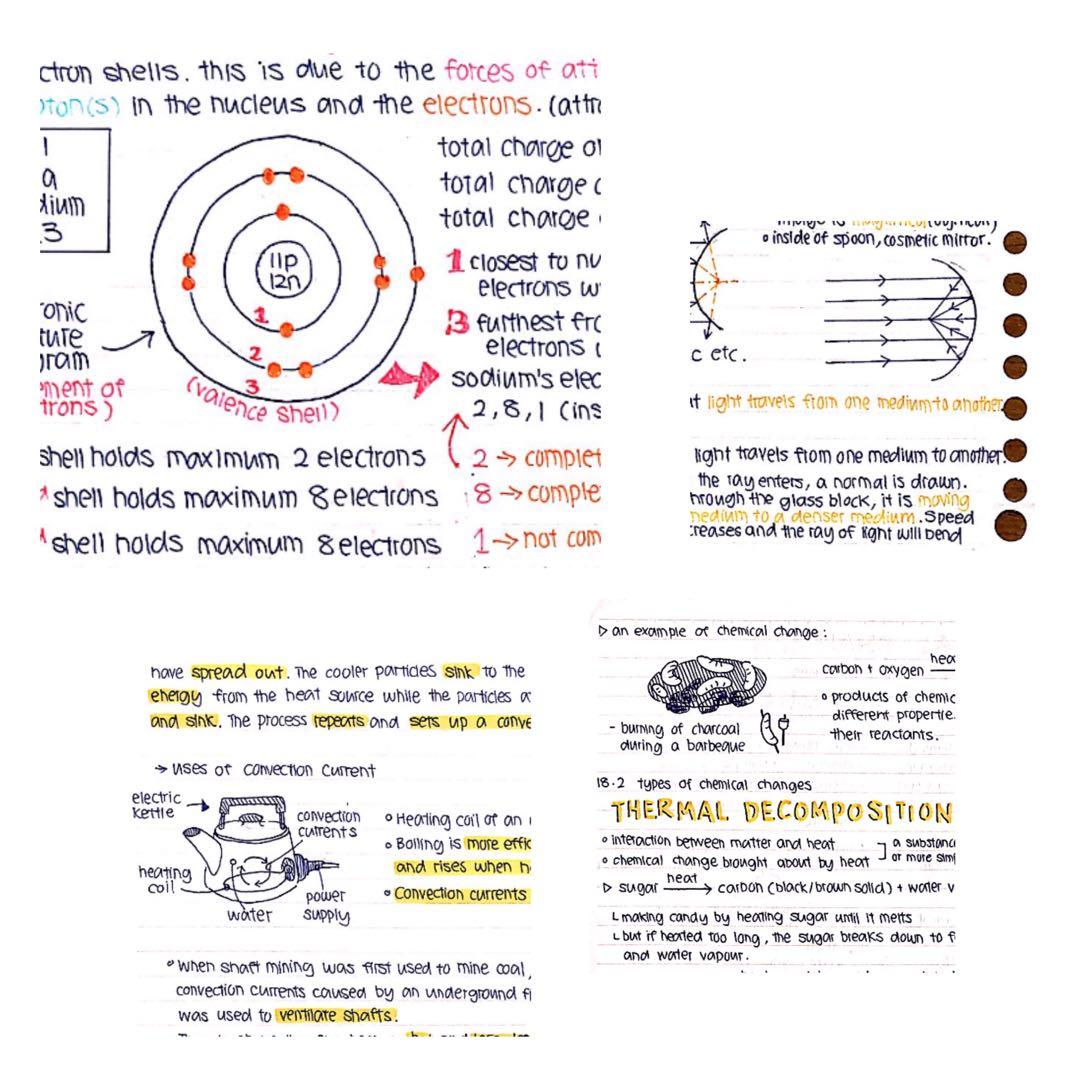 ctron shells. this is due to the forces of att
oton(s) in the nucleus and the electrons. (attr
1
a
dium
.3
11p
12n
1
2
3
(valence shell)
onic
ture
gram
ement of
trons)
total charge o
total charge
total charge
1 closest to nu
electrons w
3 furthest fro
electrons
sodium's elec
2,8,1 (ins
shell holds maximum 2 electrons
2 → complet
shell holds maximum 8 electrons
8 → comple
shell holds maximum 8 electrons
1 → not com
image is
• inside of spoon, cosmetic mirror.
c etc.
light travels from one medium to another.
light travels from one medium to another.
the ray enters, a normal is drawn.
hrough the glass block, it is moving
medium to a denser medium. Speed
creases and the ray of light will bend
have spread out. The cooler particles sink to the
energy from the heat source while the particles a
and sink. The process repeats and sets up a conve
→ uses of convection current
electric
kettle
convection
currents
heating
coil
water
power
supply
• Heating coil of an
• Boiling is more effic
and rises when h
• Convection currents
• When shaft mining was first used to mine coal,
convection currents caused by an underground fi
was used to ventilate shafts.
▷ an example of chemical change:
carbon + oxygen hea
• products of chemic
different propertie
their reactants.
- burning of charcoal
during a barbeque
18.2 types of chemical changes
THERMAL DECOMPOSITION
• interaction between matter and heat
• chemical change brought about by heat
a substanc
or more sim
▷ sugar heat → carbon (black/brown solid) + water v
making candy by heating sugar until it melts
but if heated too long, the sugar breaks down to f
and water vapour.